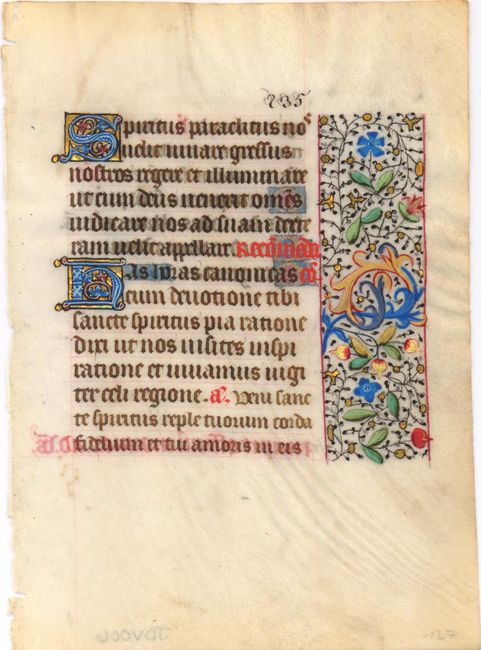 235
Spiritus paraclitus no^s
velit iuvare gressus
nostros regere et illuminare
ut cum deus venerit om̄es
iudicare nos ad suam dexte
ram velit apellare
Has horas canonicas
cum devotione tibi
sancte spiritus pia ratione
dixi ut nos visites inspi
ratione et vivamus iugi
ter celi regione. a͞. Veni sanc
te spiritus reple tuorum corda
fidelium et tui amoris in eis
127